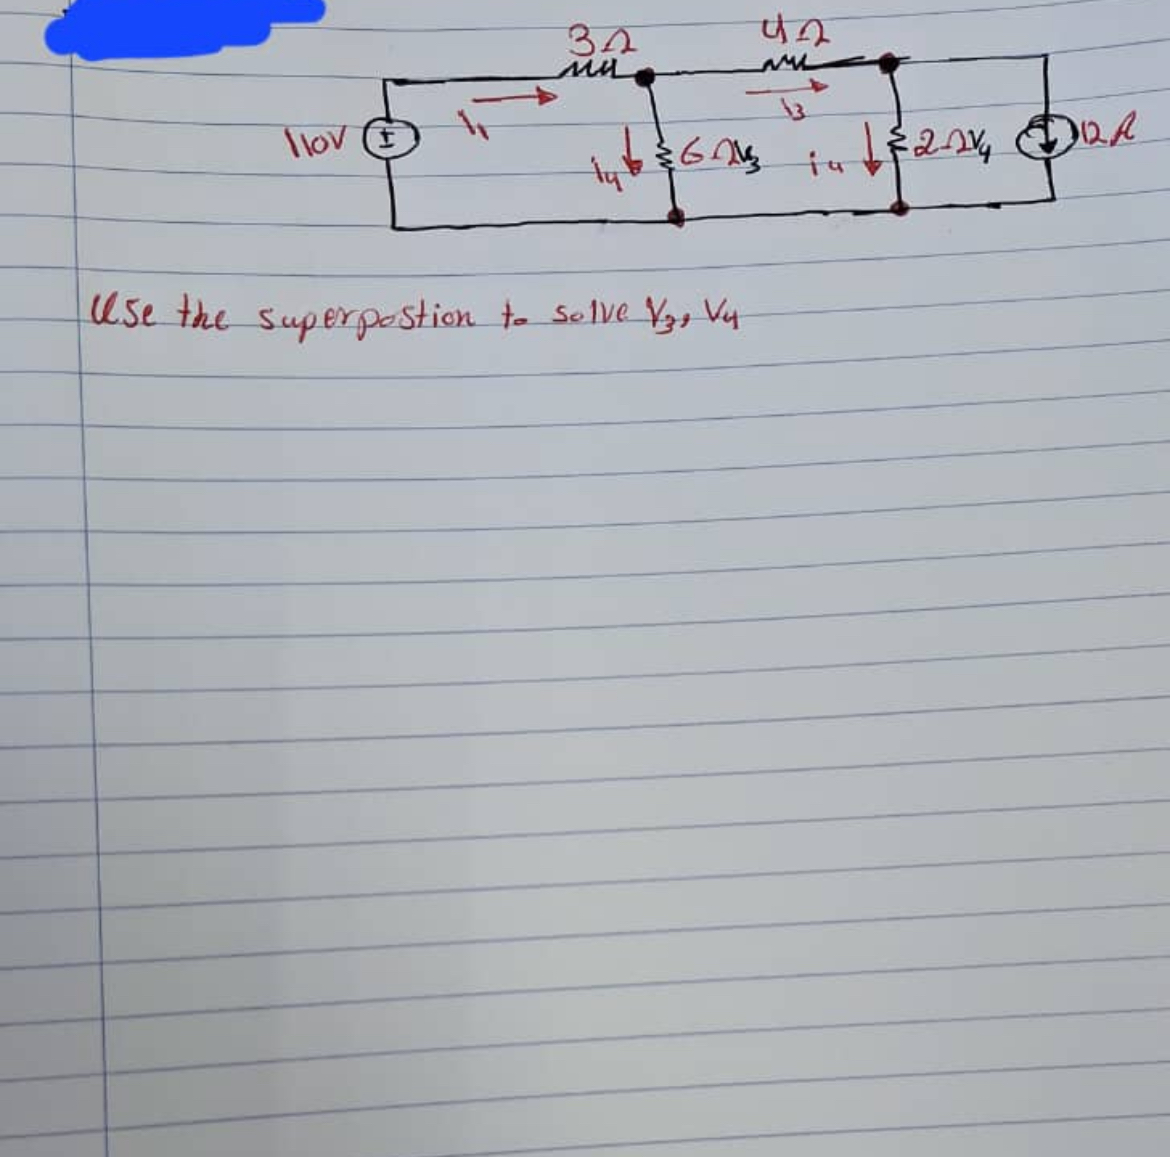 3Ω 4Ω
110V I₁ i₄ 6Ω V₃ i₃ i₄ 2Ω V₄ 12A
Use the superpostion to solve V₃, V₄